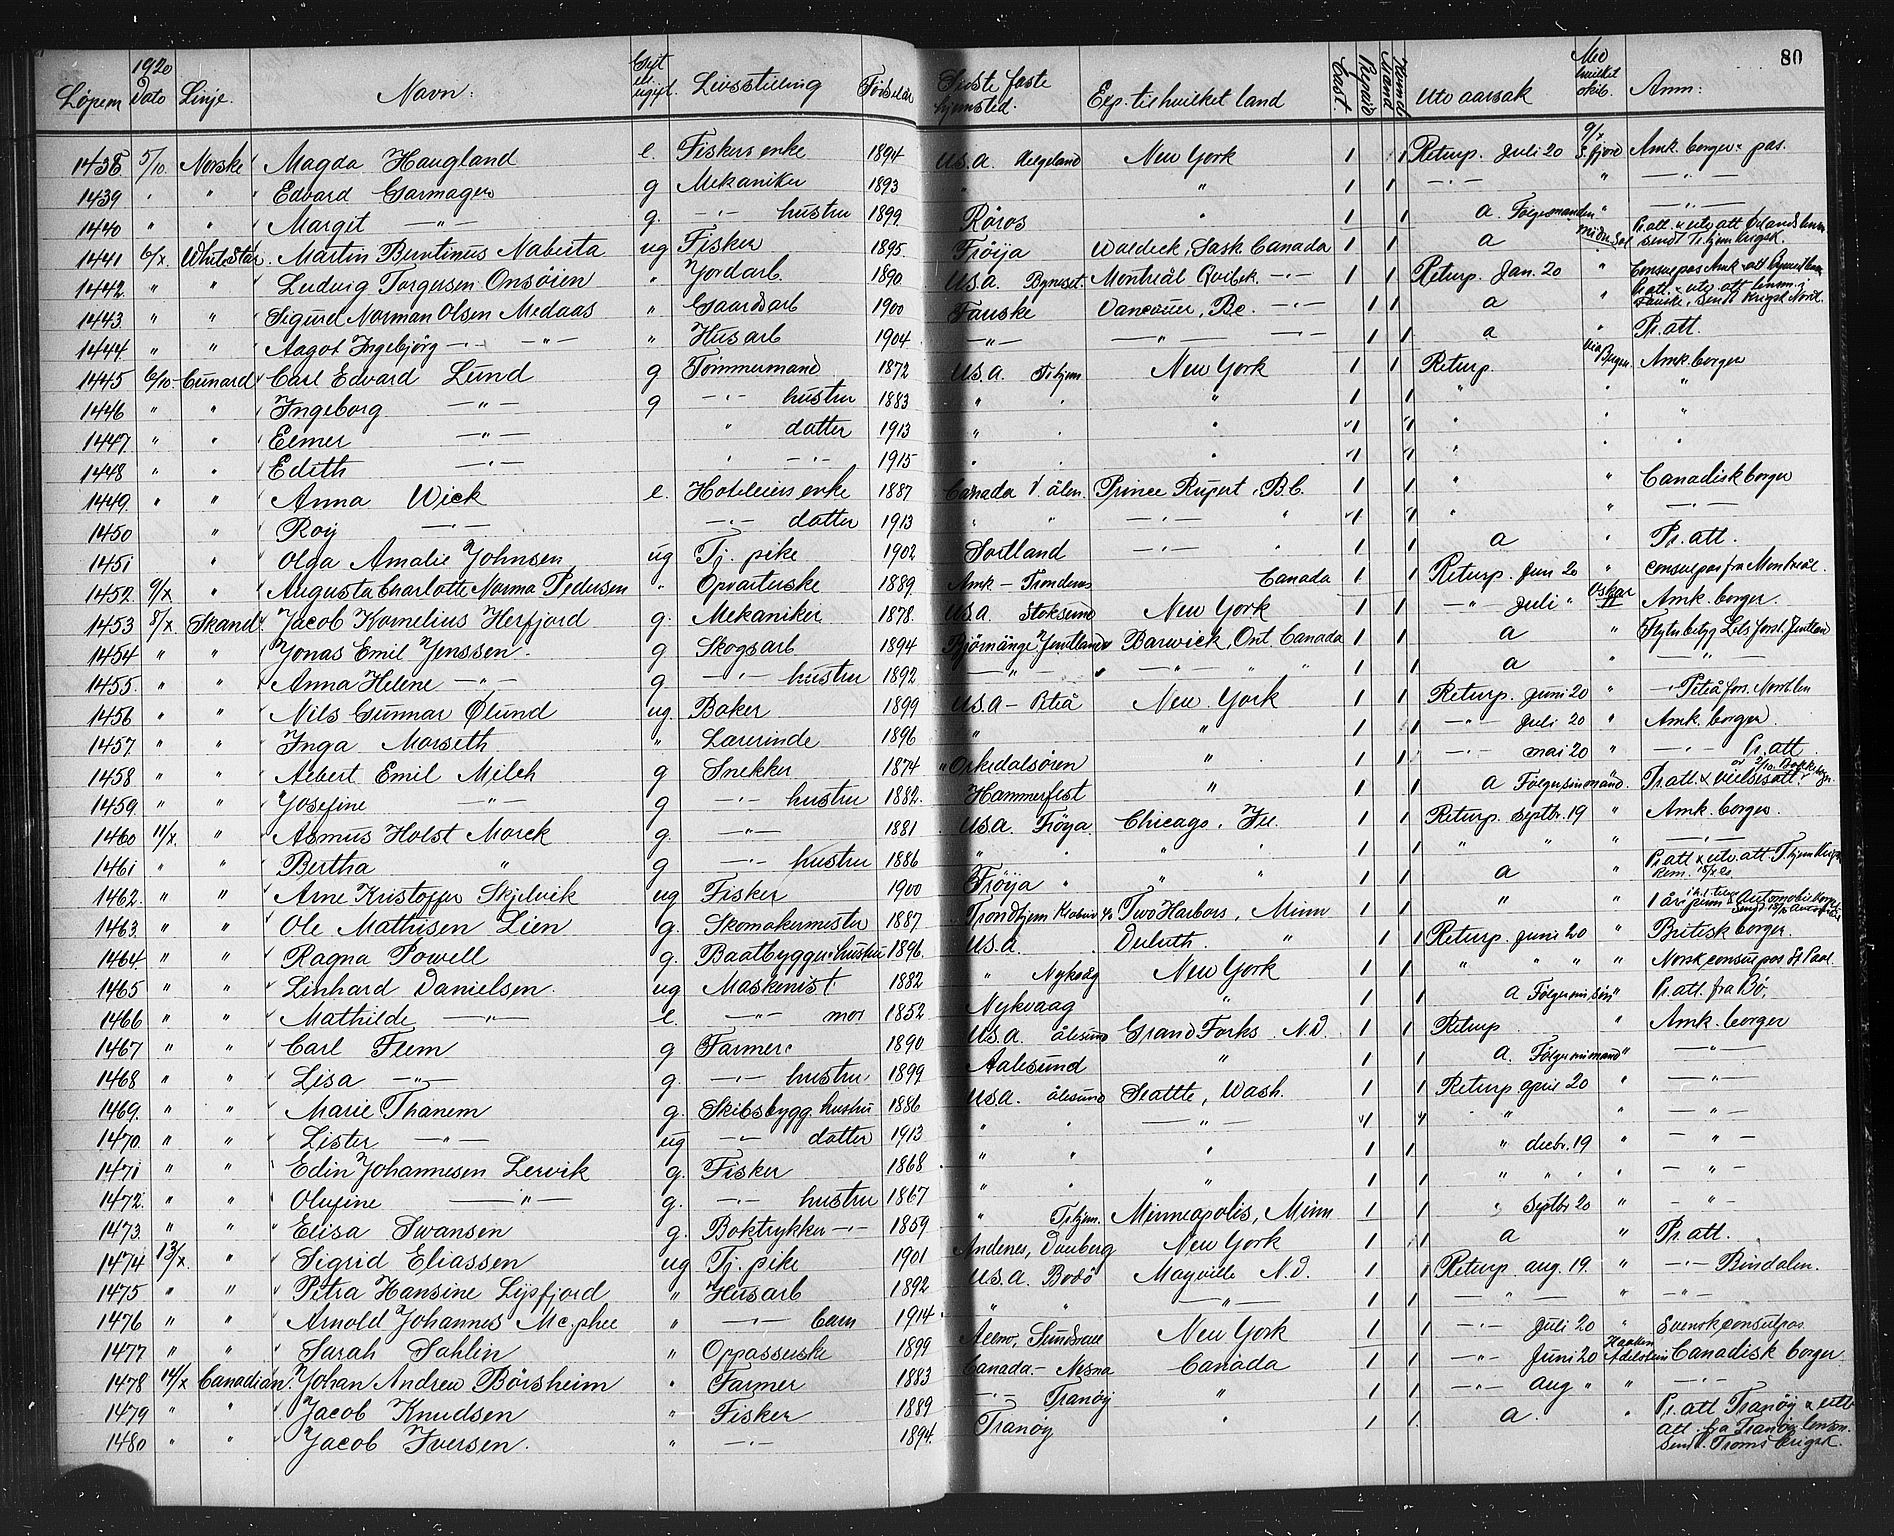 80
Löpem 1920 Dato Linje. Navn: Gift el. ugift. Livsstilling Födselsår Sidste faste hjemsted. Exp. til hvilket land Utv aarsak Med hvilket skib. Anm:
1438 5/10. Norske Magda Haugland e. Fiskers enke 1894 U.S.a. Helgeland New York 1 1 Returp. Juli 20 9/x S. fjord Amk. borger pas.
1439 " " Edvard Garmager g Mekaniker 1893 " " 1 1 —"— " —"—
1440 " " Margit —"— g. —"— hustru 1899. Röros " 1 1 a Følger manden " —"—
1441 6/x. White Star. Martin Berntinus Nabeita ug Fisker 1895. Fröija Waldeck, Sask. Canada 1 1 a Pr. att. & utv. att Ørlands lensm. sendt Tr.hjem krigsk.
1442. " " Ludvig Torgersen Onsöien " Jordarb. 1890. U.S.a. Byneset. Montreal Qvibek. —"— 1 1 Returp. Jan. 20 "
1443. " " Sigurd Norman Olsen Medaas " Gaardsarb 1900 Fauske Vancouver, B.c. —"— 1 1 a "
1444. " " Aagot Ingebjörg —"— —"— " Husarb 1904. —"— —"— —"— 1 1 a " Pr. att.
1445 6/10- Cunard Carl Edvard Lund g Tömmermand 1872 U.S.a. Tr.hjem New York 1 1 Returp. via Bergen. Amk. borger
1446 " " Ingeborg —"— g —"— hustru 1883 " " " 1 1 " " "
1447. " " Elmer —"— " datter 1913 " " " 1 1 " " "
1448 " " Edith —"— " —"— 1915 " " " 1 1 " "
1449. " " Anna Wick e. Hoteleiers enke 1887 Canada ålen. Prince Rupert, B.C. 1 1 " " Canadisk borger
1450 " Roy —"— —"— datter 1913 " " —"— " 1 1 " " —"—
1451 " Olga Amalie Johnsen ug Tj. pike 1902 Sortland —"— " 1 1 a " Pr. att.
1452. 9/x " Augusta Charlotte Norma Pedersen " Opvarterske 1889. Amk — Trondenes Canada 1 1 Returp. Juni 20 " consulpas fra Montreal.
1453 8/x Skand. Jacob Kornelius Herfjord g. Mekaniker 1878. U.S.a Stoksund New York 1 1 —"— Juli " Oskar II Amk. borger.
1454 " " Jonas Emil Jenssen. g Skogsarb 1894 Björnänge Jemtland Barwick, Ont. Canada 1 1 a " Flyttebetyg
1455. " " Anna Helene —"— g —"— hustru 1892 —"— —"— " " 1 1 a " —"—
1456 " " Nils Gunnar Ølund ug. Baker 1899 U.S.a — Piteå New York 1 1 Returp. Juni 20 "
1457. " " Inga Morseth. " Lærerinde 1896 " " 1 1 —"— Juli 20 " Amk. borger.
1458 " " Albert Emil Milch g Snekker 1874 " Orkedalsören " 1 1 —"— mai 20 " —"— Pr. att
1459. " " Josefine —"— g —"— hustru 1882. Hammerfest " 1 1 a Følger sin mand. " Pr. att. & vielsesatt.
1460 11/x. " Asmus Holst Morck g. —"— 1881 U.S.a Fröya Chicago, Ill. 1 1 Returp. Septbr. 19 " Amk. borger.
1461 " " Bertha " g —"— hustru 1886 " " " " 1 1 " " " —"—
1462. " " Arne Kristoffer Skjelvik ug Fisker 1900 Fröija " " " 1 1 a " Pr. att & utv. att. T.hjem
1463. " " Ole Mathisen Lien g. Skomakermester 1887 Trondhjem Two Harbors, Minn 1 1 " "
1464. " " Ragna Powell g. Baatbyggers hustru 1896. U.S.a. Duluth. " 1 1 Returp. Juni 20 " Britisk borger.
1465 " " Linhard Danielsen. ug Maskinist. 1882 " Nykvåg New York 1 1 " " " " Norsk consulpas St Paul
1466 " " Mathilde —"— e. —"— mor 1852 Nykvaag " 1 1 a Følger sin sön " Pr. att. fra Bö.
1467 " " Carl Flem g Farmer 1890 U.S.a. ålesund Grand Forks N.D. 1 1 Returp " Amk. borger
1468 " " Lisa —"— g. —"— hustru 1899 Aalesund " 1 1 a. Følger sin mand " —"—
1469. " " Marie Thanem g. Skibsbygg. hustru 1886 U.S.a. ålesund Seattle, Wash. 1 1 Returp april 20 " —"—
1470. " " Lister —"— ug —"— datter 1913 " " —"— 1 1 " " —"—
1471 " " Edin Johannesen Lervik g. Fisker 1868 " " 1 1 " decbr. 19 " —"—
1472. " " Olufine —"— g. —"— hustru 1867 " " " 1 1 " " " —"—
1473. " " Elisa Swansen g. Boktrykker —"— 1859 " Tr.hjem. Minneapolis, Minn 1 1 " Septbr 20 " —"—
1474 13/x. " Sigrid Eliassen ug Tj. pike 1901 Andenes, Dverberg New York 1 1 a " Pr. att.
1475 " " Petra Hansine Lysfjord " Husarb 1892 U.S.a. Bodö Mayville N.D. 1 1 Returp. aug. 19. " —"— Bindalen.
1476 " " Arnold Johannes Mc.phee " —"— barn 1914 " " —"— 1 1 —"— " —"—
1477 " " Sarah Sahlin " Oppasserske 1899 Alnö, Sundsvall New York 1 1 —"— Juli 20 " Svensk consulpas.
1478 14/x Canadian. Johan Andrew Börsheim " Farmer 1883 Canada — Nesna Canada 1 1 —"— Juni 20 Haakon Adelstein Canadisk borger
1479 " " Jacob Knudsen " Fisker 1889 —"— Tranöy " 1 1 —"— aug " " —"—
1480 " " Jacob Iversen. " —"— 1894. Tranöy " 1 1 a. " Pr. att Tranöy & utv. att. fra Tranöy lensm. Sendt. Troms krigsk.